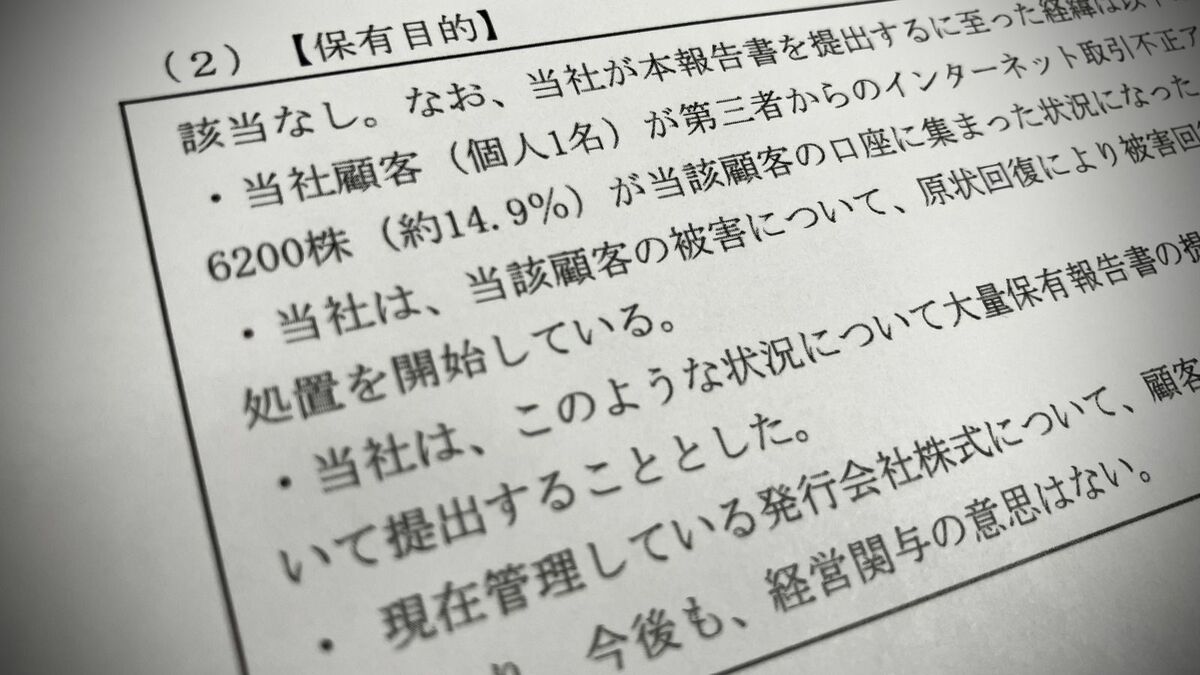 (2) 【保有目的】
該当なし。なお、当社が本報告書を提出するに至った経緯は以下
・当社顧客(個人1名)が第三者からのインターネット取引不正ア
6200株(約14.9%)が当該顧客の口座に集まった状況になった
・当社は、当該顧客の被害について、原状回復により被害回
処置を開始している。
・当社は、このような状況について大量保有報告書の提
いて提出することとした。
・現在管理している発行会社株式について、顧客
今後も、経営関与の意思はない。